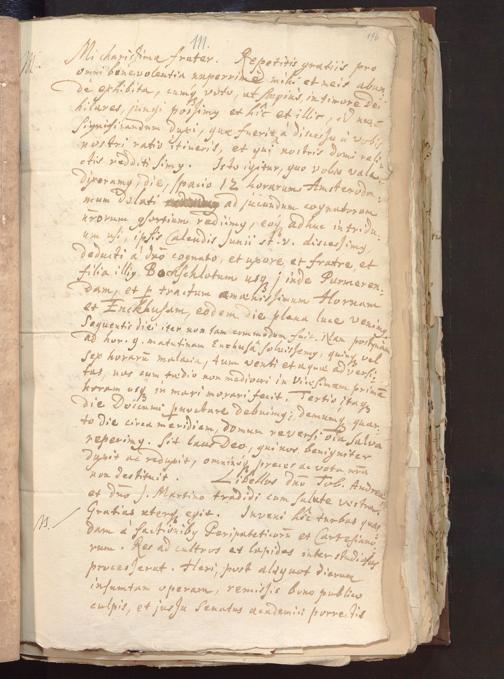 111.
196
M.
Mi charissime frater. Repetitis gratiis pro
omni benevolentia nuperrimè mihi et meis abun
de exhibita, cumq voto, ut sæpius, in timore Dei
hilares, jungi possimq et hîc et illic, id
significandum duxi, quæ fuerit a discessu à vobis
nostri ratio itineris, et qui nostris domi reli-
ctis redditi simq. Isto igitur, quo vobis vale
dixeramq, die, spacio 12 horarum Amsteroda-
mum delati ad jucundum cognatorum
nrorum consortium rediimq, eoq adhuc
usi, ipsis Calendis Junii st. v. discessimq
deducti à dno cognato, et uxore et fratre et
filia illiq Bockschlotum usq; inde Purmeren-
dam, et p tractum amœnissimum Hornam
et Enckhusam, eodem die plena luce venimq
Sequentis diei iter non tam commodum fuit. Nam postquam
ad hor. 9. matutinam Enchusâ solvissemq, quinq vel
sex horarũ malacia, tum venti et aquæ adversi-
tas, nos cum tædio non mediocri in vicesimam primã
horam usq in mari morari fecit. Tertio itaq
die Doccumi pernoctare debuimq; demumq quar-
to die circa meridiem, domum reversi oia salva
reperimq. Sit laus Deo, qui nos benigniter
duxit ac reduxit, omninoq preces ac vota nra
non destituit. Libellos dno Tob. Andreæ
et dno J. Martino tradidi cum salute vestra.
Gratias uterq egit. Inveni hîc turbas quas
dam à factionibq Peripateticorũ et Cartesiano
rum. Res ad cultros et lapides inter studiosos
processerat. Heri, post aliquot dierum
insumtam operam, remissis bono publico
culpis, et jussu Senatus academici porrectis
NB.